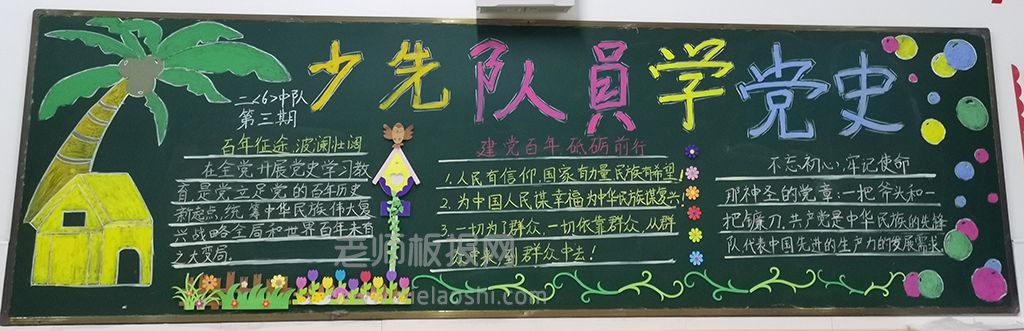 少先队員学党史
二<6>中队
第三期
百年征途、波澜壮阔
在全党开展党史学习教
育是党立足党的百年历史
新起点,统筹中华民族伟大复
兴战略全局和世界百年未有
之大变局.
建党百年 砥砺前行
1.人民有信仰,国家有力量,民族有希望!
2.为中国人民谋幸福,为中华民族谋复兴!
3.一切为了群众,一切依靠群众,从群
众中来,到群众中去!
不忘初心,牢记使命
那神圣的党章:一把斧头和一
把镰刀.共产党是中华民族的先锋
队代表中国先进的生产力的发展需求.
老师板报网